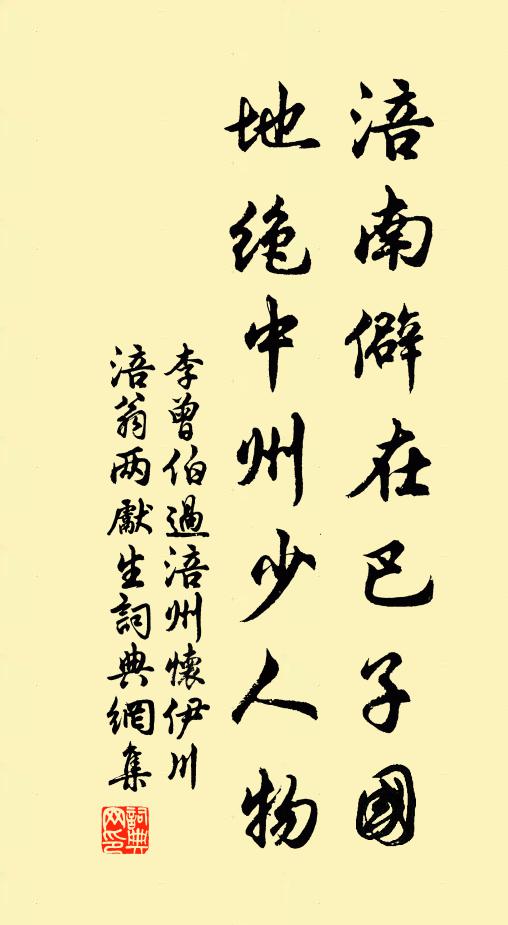 涪南僻在巴子國
地绝中州少人物
李曾伯過涪州懷伊川
涪翁两獻生詞典網集
詞典网印